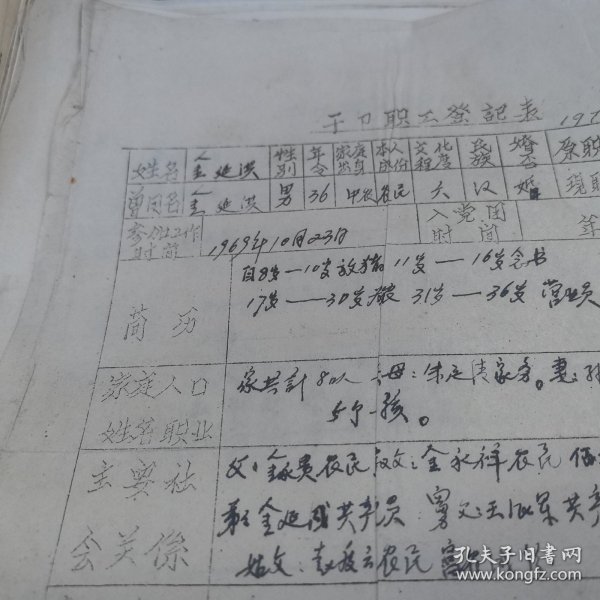 干 卩 职 工 登 記 表 197
姓名 金延洪 性别 年令 家庭出身 本人成份 文化程度 民族 婚否 原职
曾用名 金延洪 男 36 中农 农民 六 汉 婚 现职
参加工作时间 1969年10月23日 入党团时间 年
简历 自8岁—10岁放猪 11岁—16岁念书
17岁——30岁农 31岁—36岁 营业员
家庭人口姓名职业 家共計8口人 母：朱 家务。妻：
5个孩。
主要社会关係 父：金 贵农民 叔父：金永祥农民
弟：金延成共产党员 舅父：王 共产
姑父：赵 农民
孔夫子旧书网
www.kongfz.com